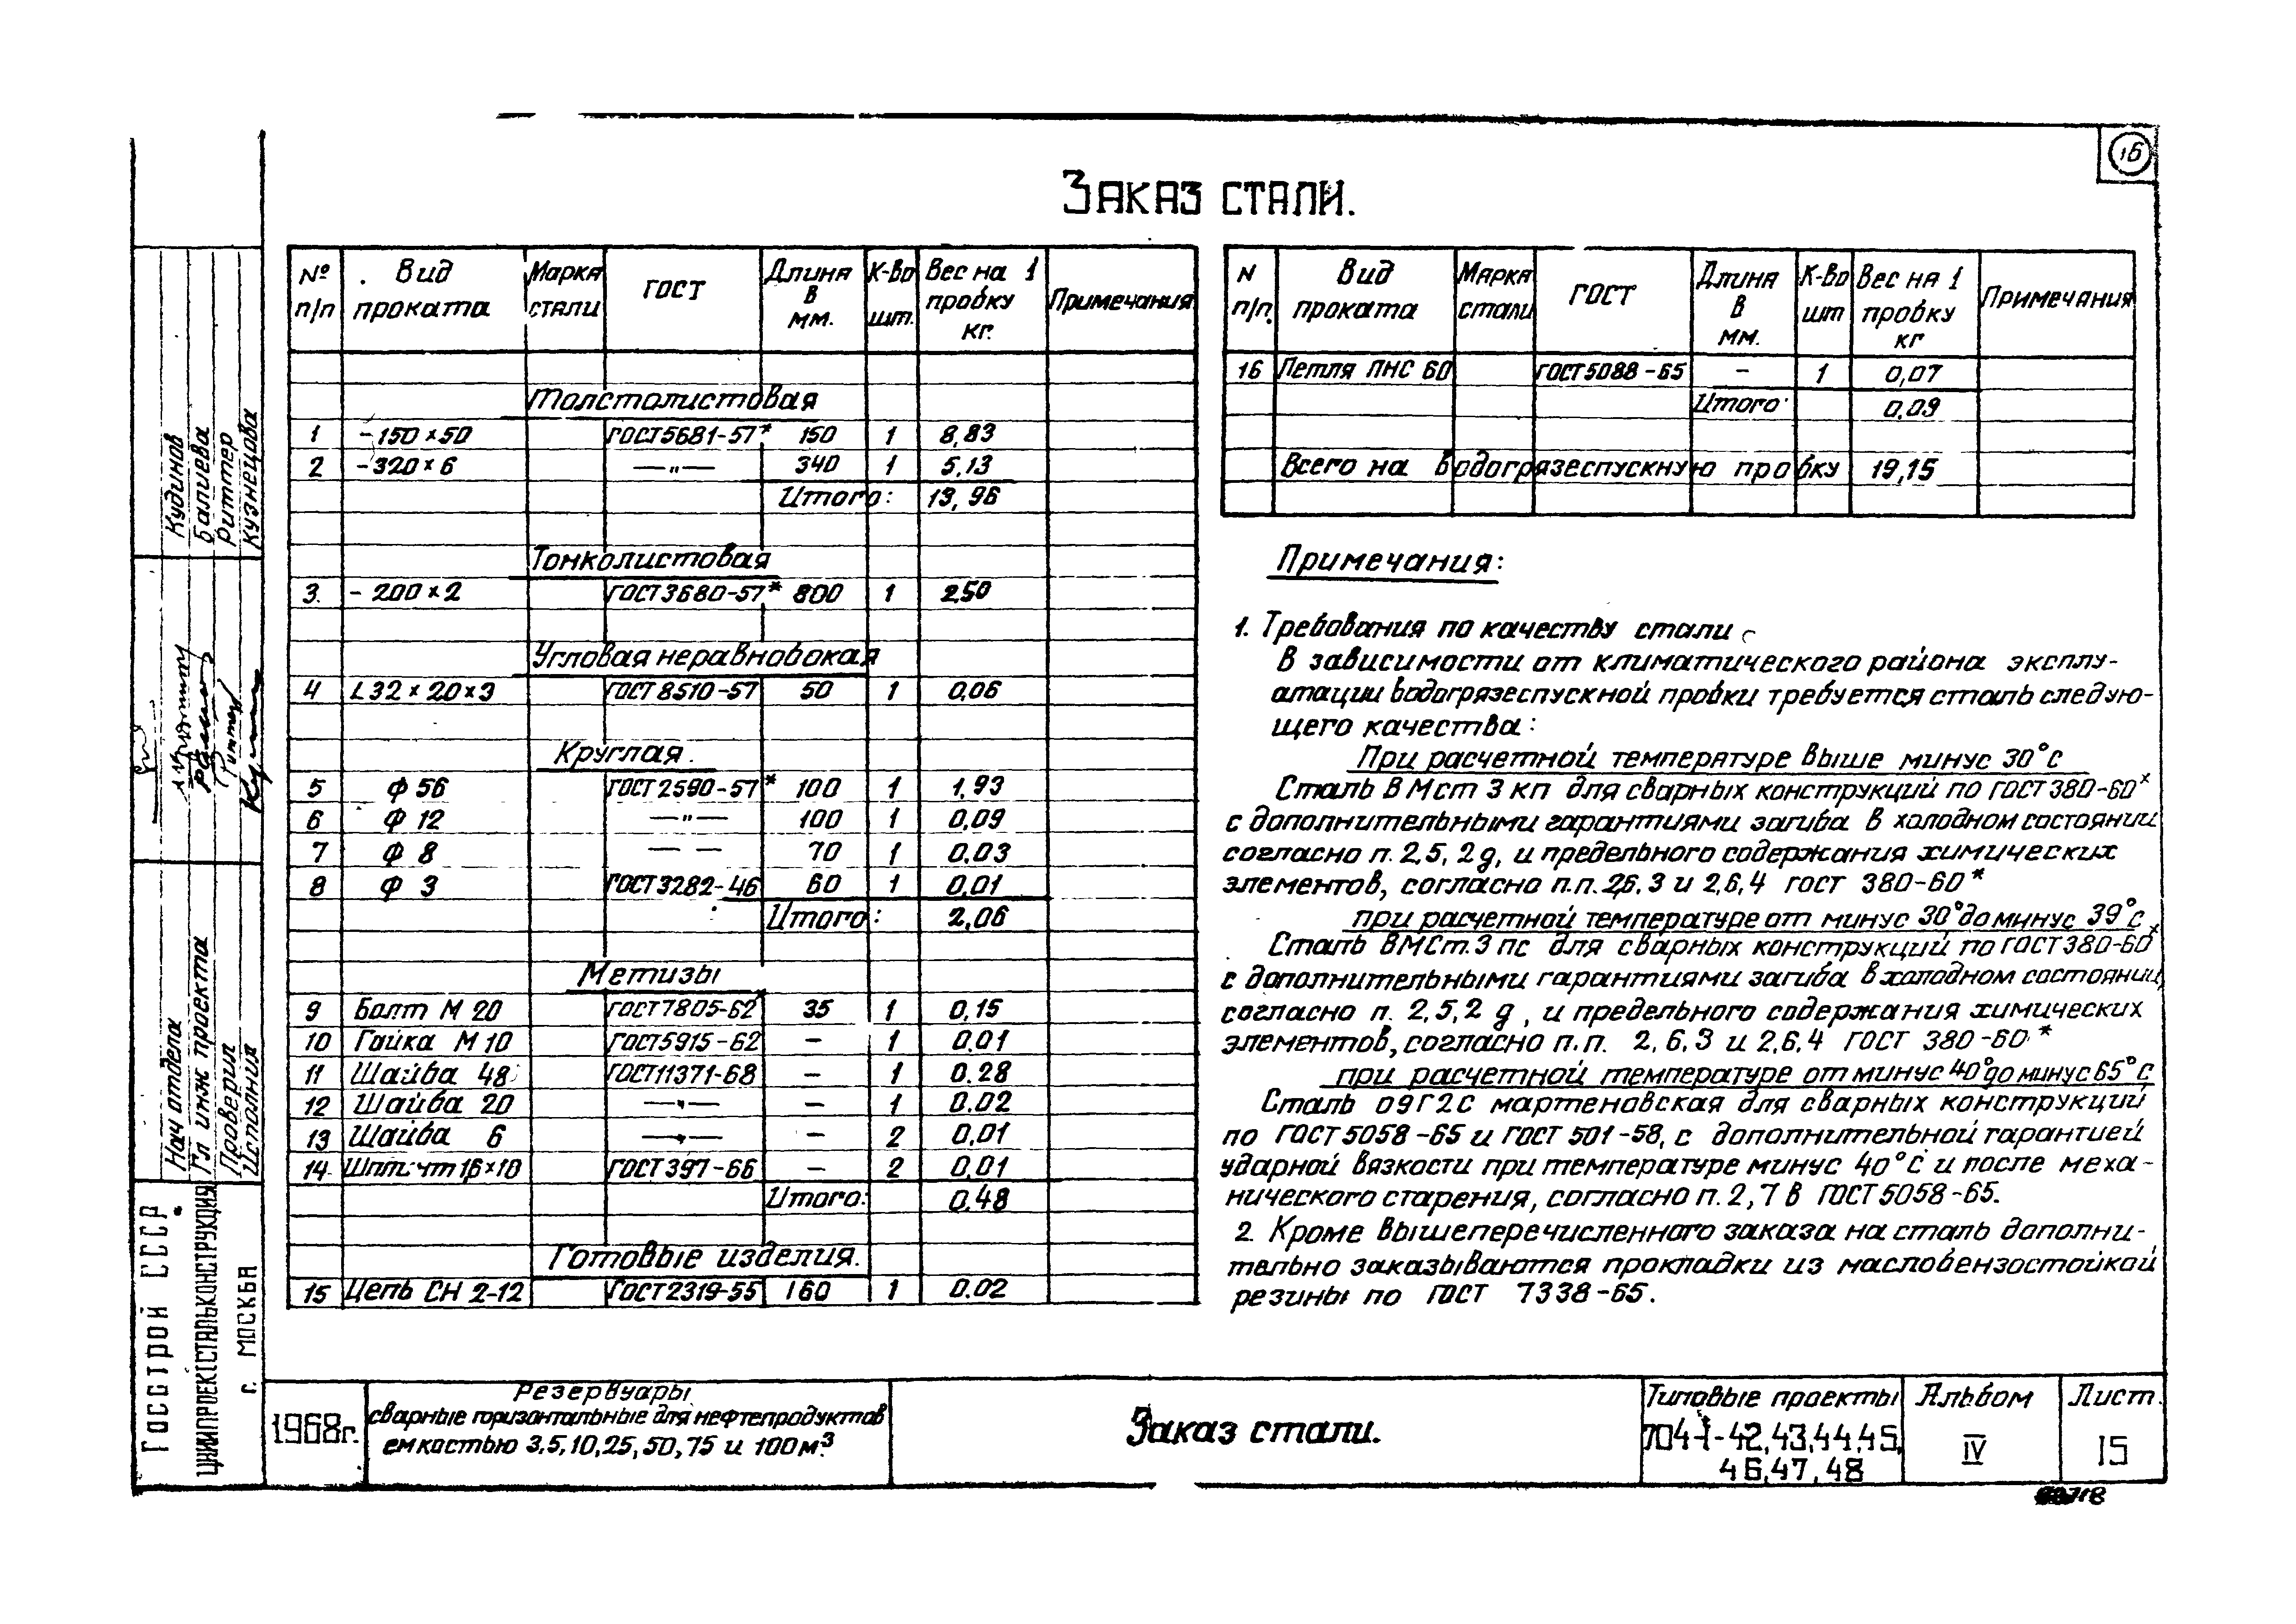 16
Заказ стали.
№ п/п Вид проката Марка стали ГОСТ Длина в мм. К-во шт. Вес на 1 пробку кг. Примечания
Толстолистовая
1 -150×50 ГОСТ5681-57* 150 1 8,83
2 -320×6 —"— 340 1 5,13
Итого: 13,96
Тонколистовая
3. -200×2 ГОСТ3680-57* 800 1 2,50
Угловая неравнобокая
4 L32×20×3 ГОСТ8510-57 50 1 0,06
Круглая.
5 Ф56 ГОСТ2590-57* 100 1 1,93
6 Ф12 —"— 100 1 0,09
7 Ф8 — — 70 1 0,03
8 Ф3 ГОСТ3282-46 60 1 0,01
Итого: 2,06
Метизы
9 Болт М20 ГОСТ7805-62* 35 1 0,15
10 Гайка М10 ГОСТ5915-62 – 1 0,01
11 Шайба 48 ГОСТ11371-68 – 1 0.28
12 Шайба 20 —"— – 1 0.02
13 Шайба 6 —"— – 2 0,01
14 Шплинт 16×10 ГОСТ397-66 – 2 0,01
Итого: 0,48
Готовые изделия.
15 Цепь СН 2-12 ГОСТ2319-55 160 1 0.02
N п/п. Вид проката Марка стали ГОСТ Длина в мм. К-во шт Вес на 1 пробку кг Примечания
16 Петля ПНС 60 ГОСТ5088-65 – 1 0,07
Итого: 0,09
Всего на водогрязеспускную пробку 19,15
Примечания:
1. Требования по качеству стали
В зависимости от климатического района эксплу-
атации водогрязеспускной пробки требуется сталь следую-
щего качества:
При расчетной температуре выше минус 30°с
Сталь ВМст3кп для сварных конструкций по ГОСТ380-60*
с дополнительными гарантиями загиба в холодном состоянии
согласно п. 2,5,2д, и предельного содержания химических
элементов, согласно п.п. 2,6,3 и 2,6,4 ГОСТ 380-60*
при расчетной температуре от минус 30° до минус 39°с
Сталь ВМСт.3пс для сварных конструкций по ГОСТ380-60*
с дополнительными гарантиями загиба в холодном состоянии,
согласно п. 2,5,2 д, и предельного содержания химических
элементов, согласно п.п. 2,6,3 и 2,6,4 ГОСТ 380-60*
при расчетной температуре от минус 40° до минус 65°с
Сталь 09Г2С мартеновская для сварных конструкций
по ГОСТ5058-65 и ГОСТ 501-58, с дополнительной гарантией
ударной вязкости при температуре минус 40°с и после меха-
нического старения, согласно п. 2,7в ГОСТ5058-65.
2. Кроме вышеперечисленного заказа на сталь дополни-
тельно заказываются прокладки из маслобензостойкой
резины по ГОСТ 7338-65.
Госстрой СССР
ЦНИИПРОЕКТСТАЛЬКОНСТРУКЦИЯ
г. МОСКВА
Нач отдела Кудинов
Гл инж проекта Балиева
Проверил Риттер
Исполнил Кузнецова
1968г.
Резервуары
сварные горизонтальные для нефтепродуктов
емкостью 3,5,10,25,50,75 и 100м³
Заказ стали.
Типовые проекты
704-1-42,43,44,45,
46,47,48
Альбом
IV
Лист.
15